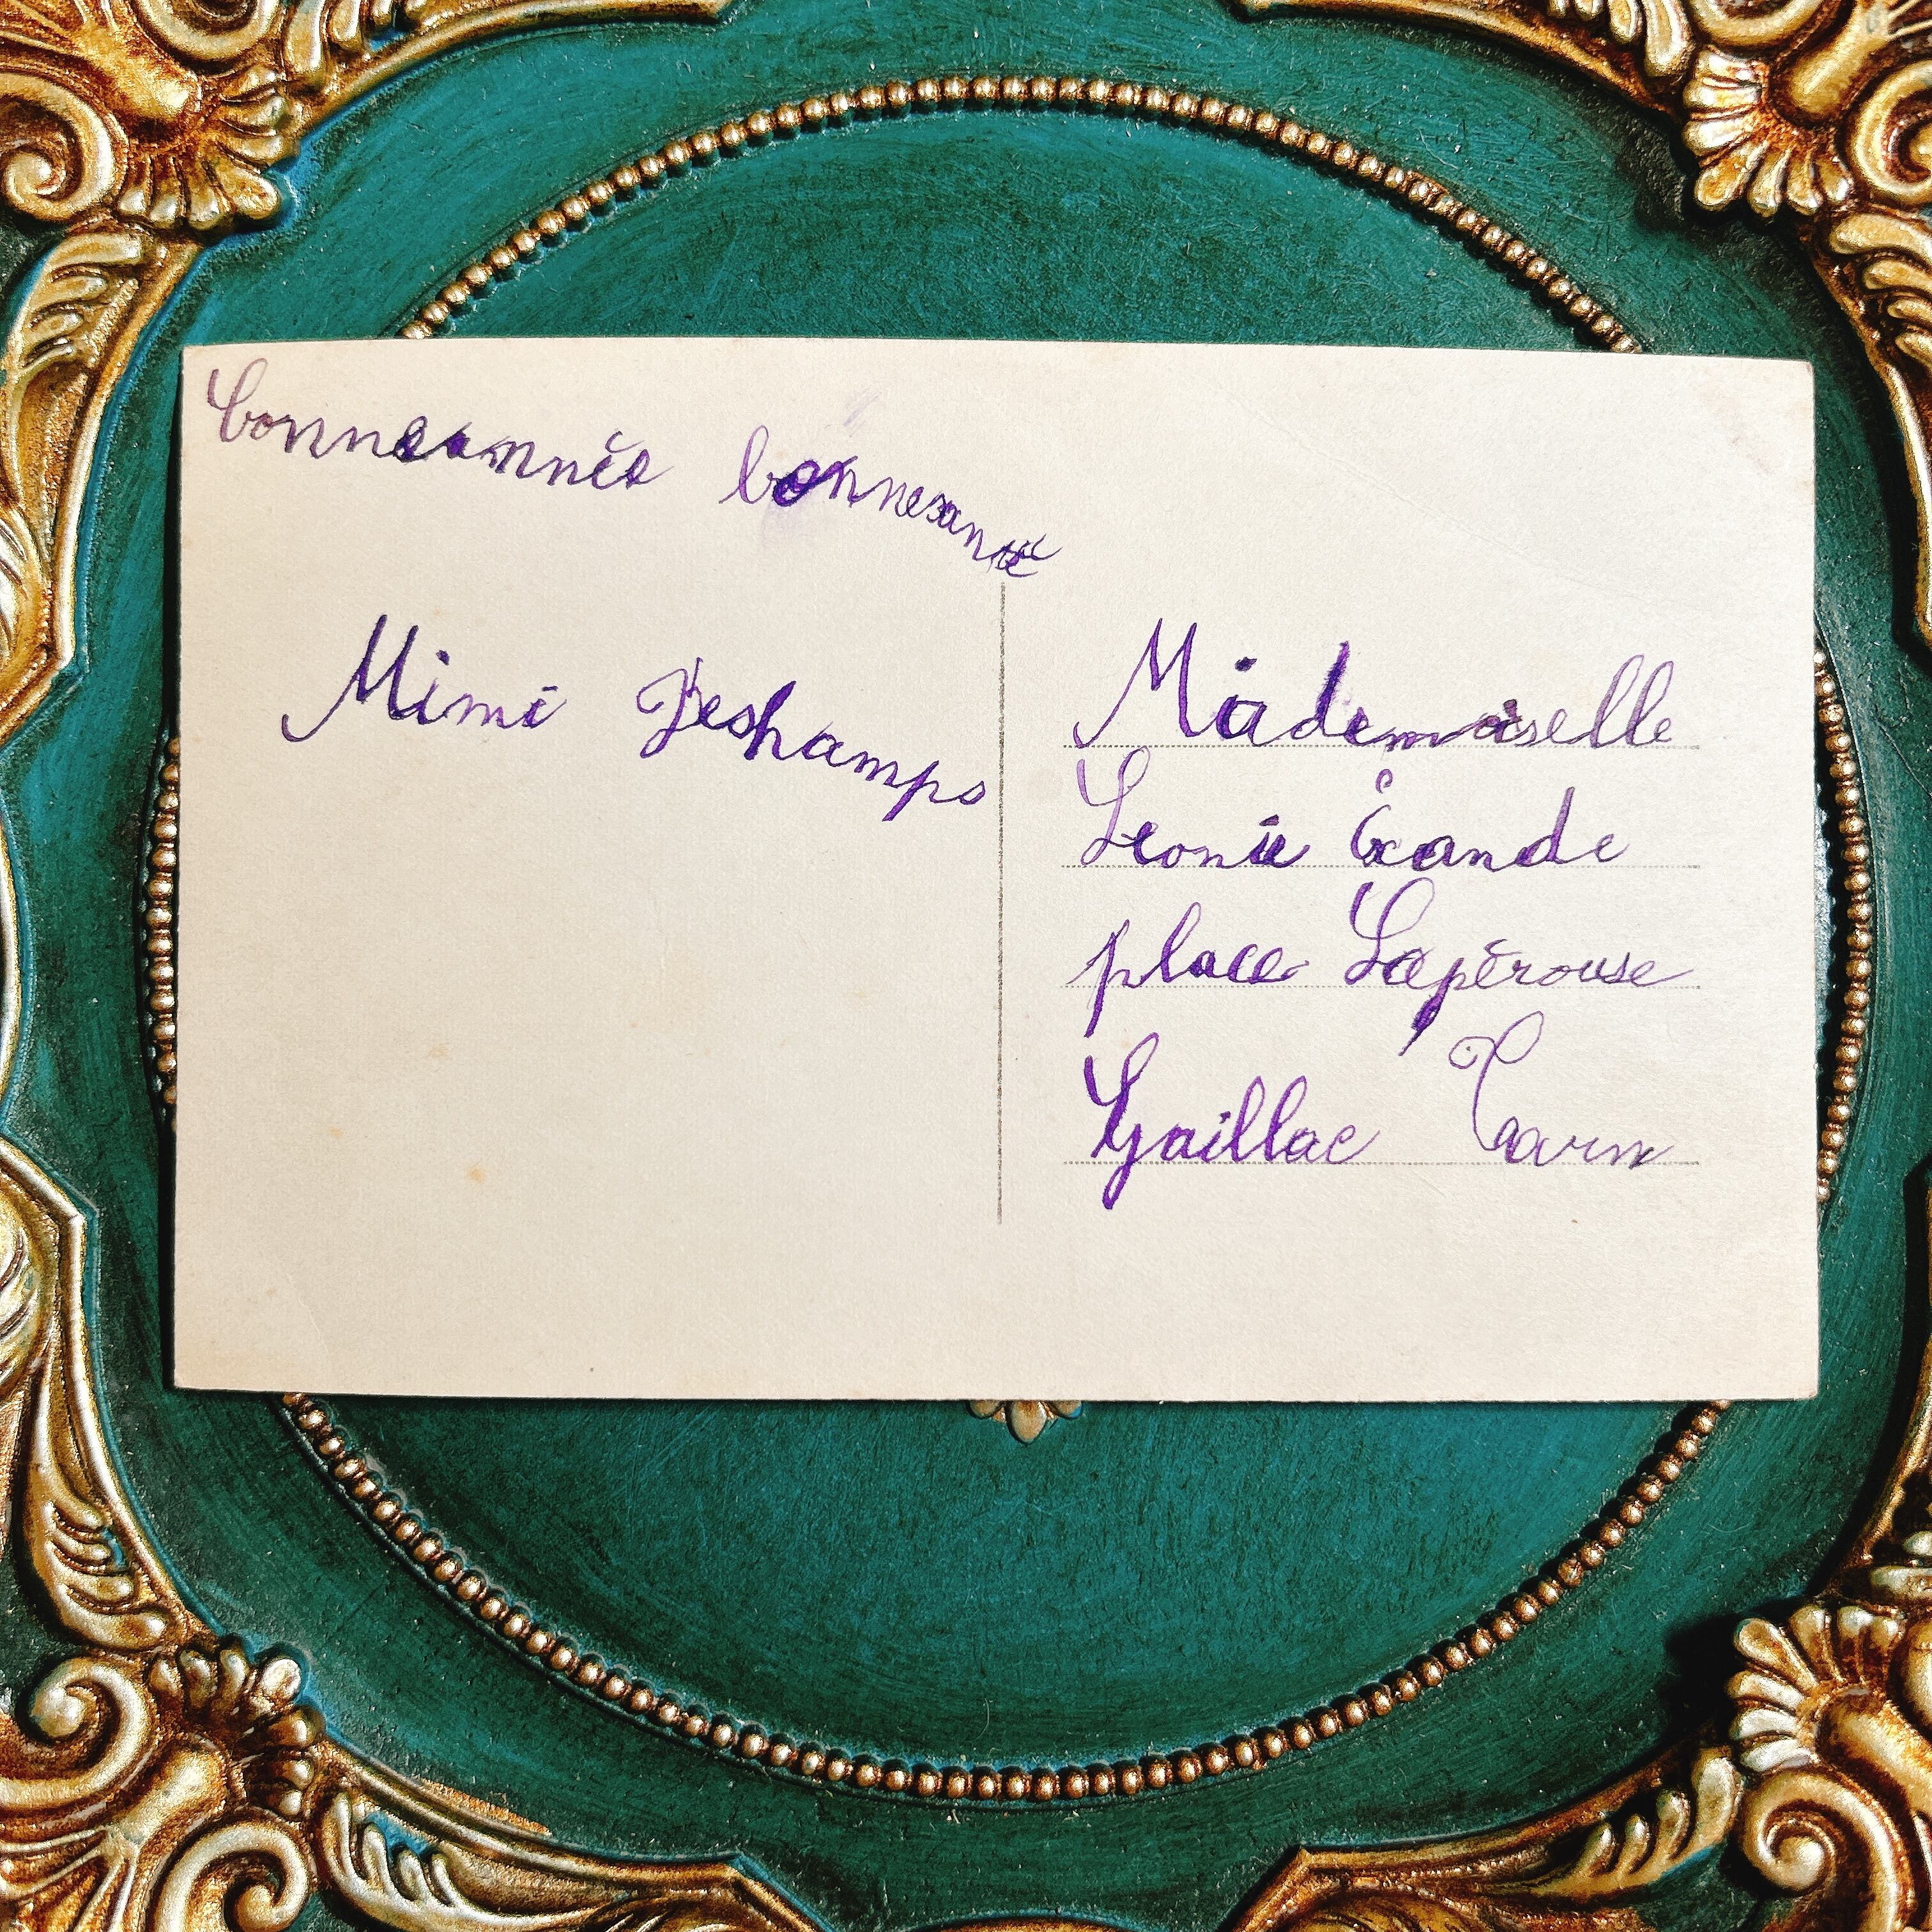 bonneannéé bonnesanté
Mimi Deshamps
Mademoiselle
Leonie
place Lapérouse
Gaillac Tarn